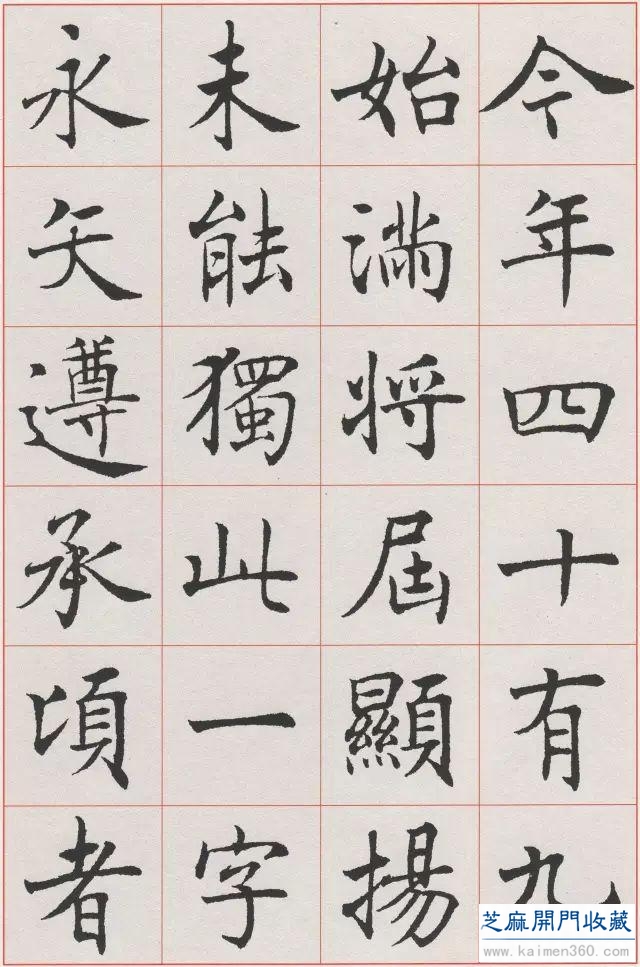 今年四十有九
始满將屆顯揚
未能獨此一字
永矢遵承頃者
芝麻開門收藏
www.kaimen360.com